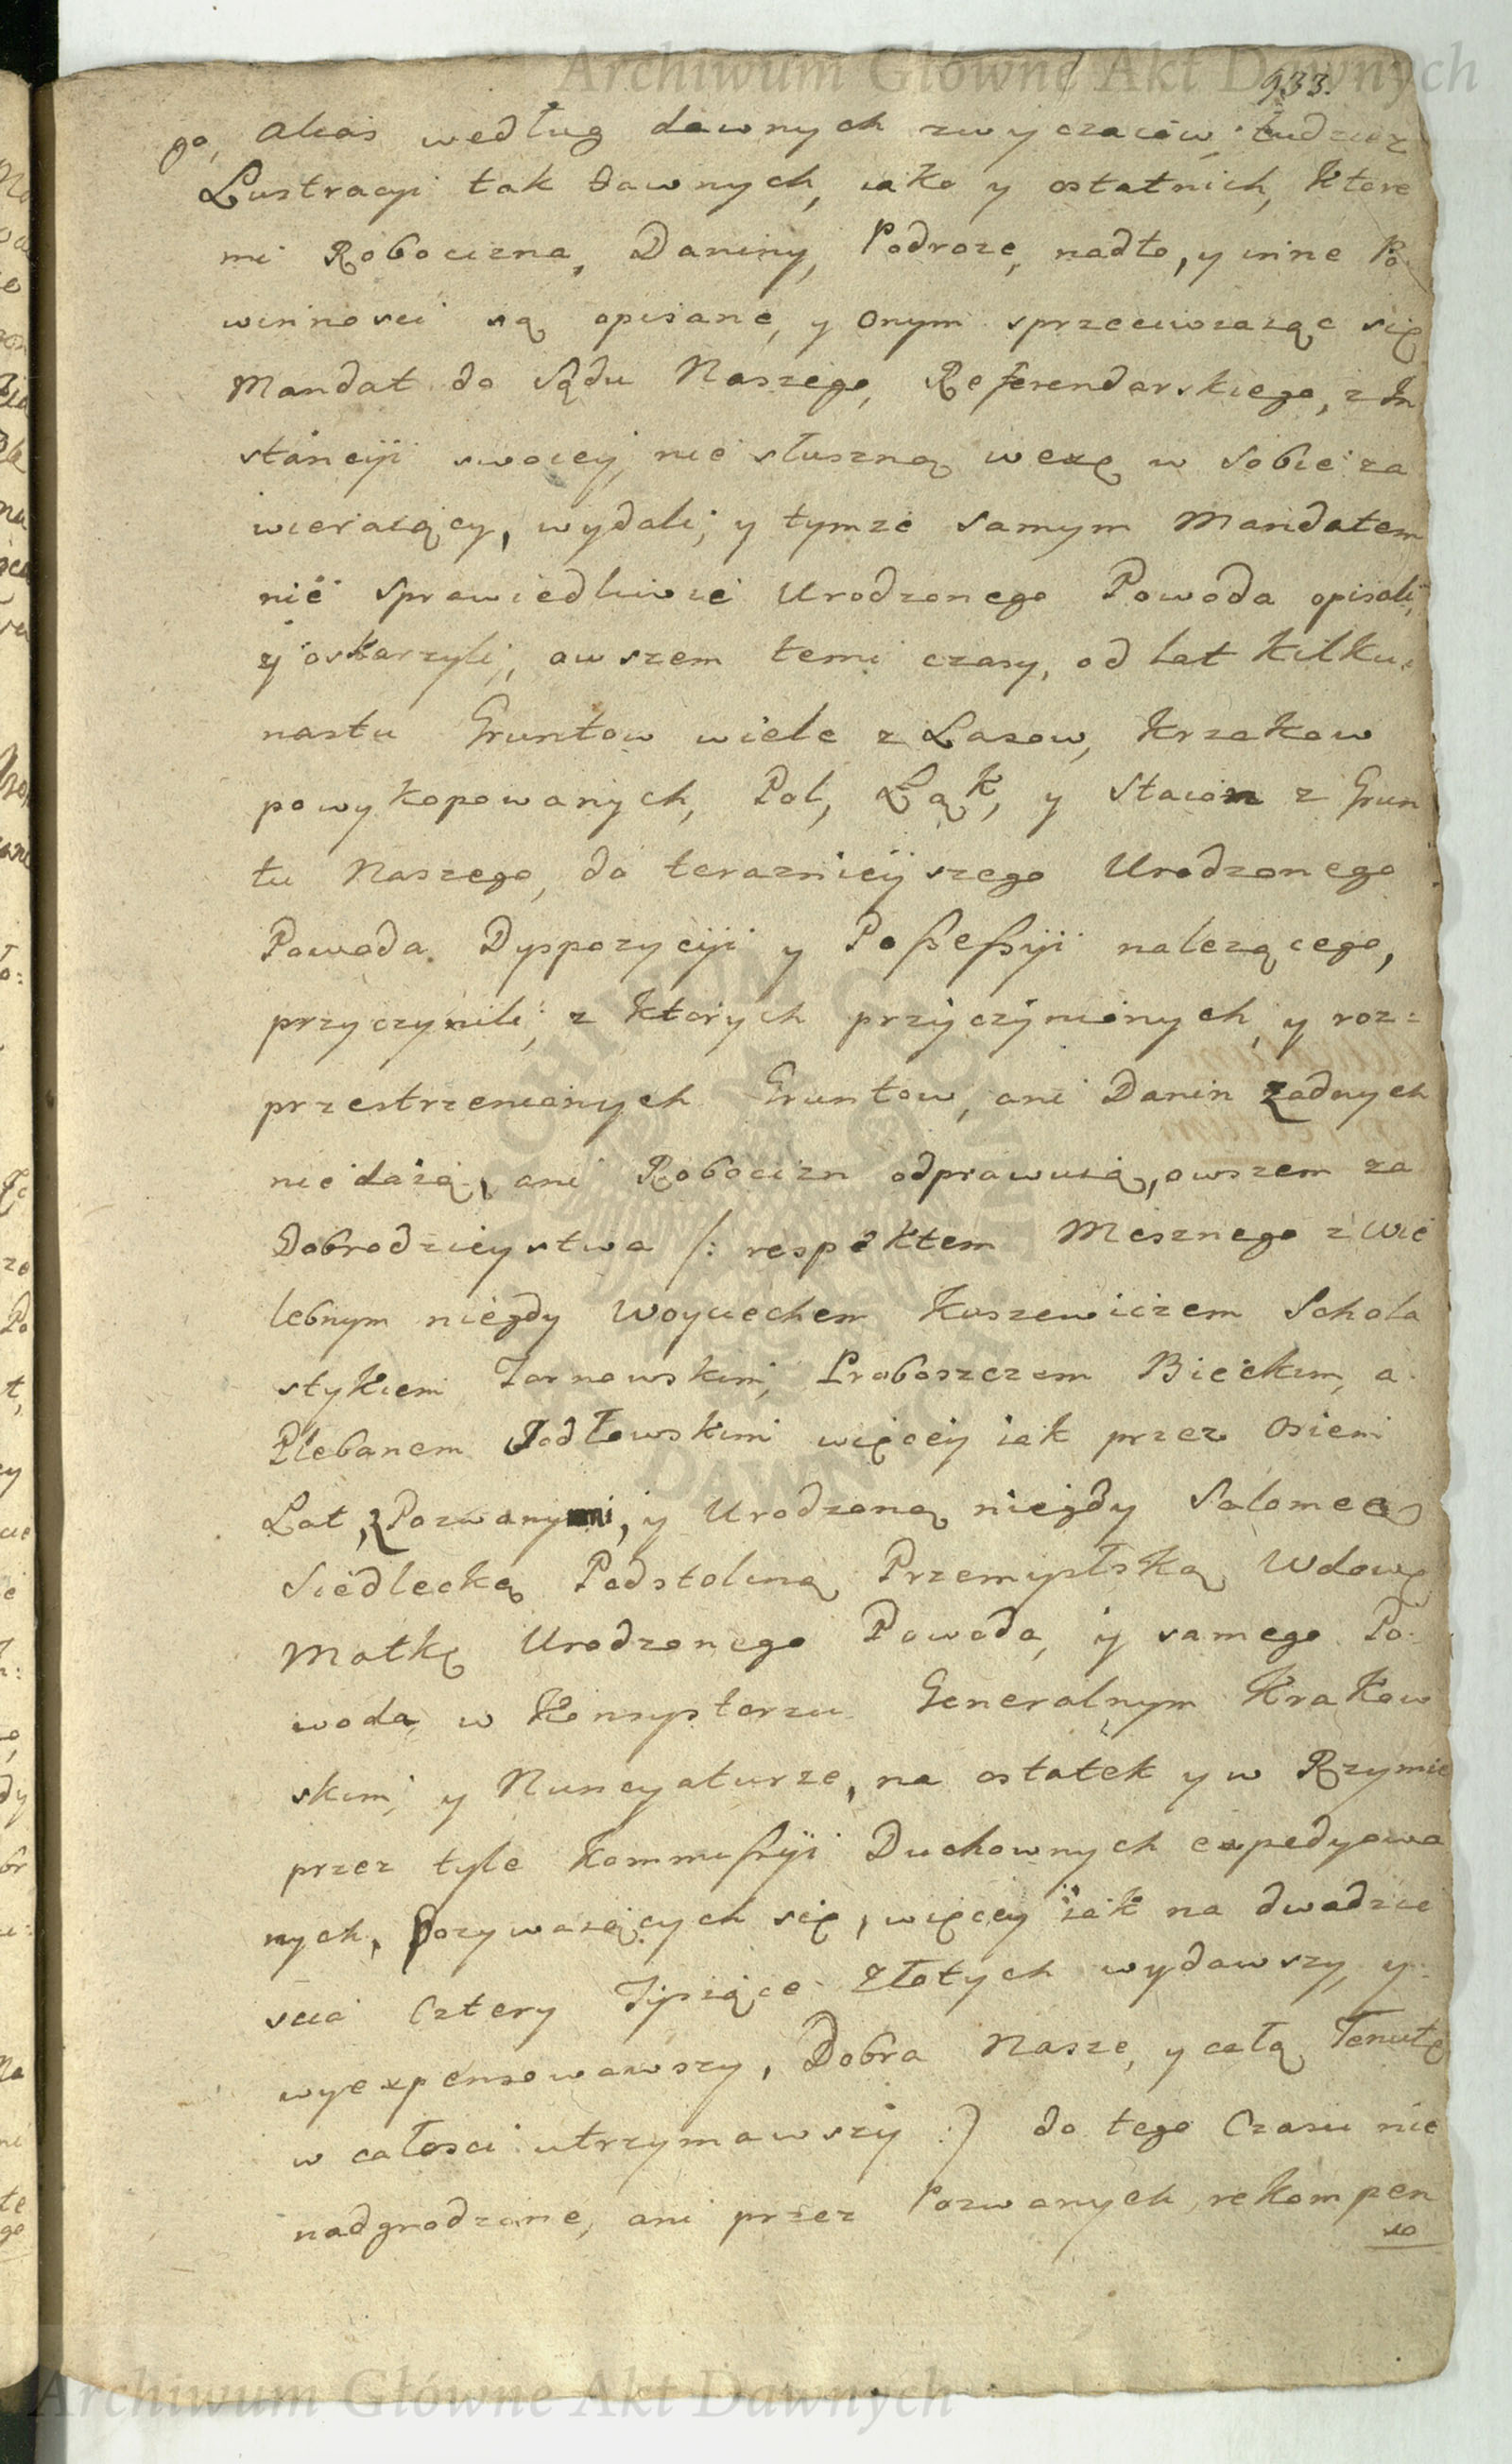 Archiwum Główne Akt Dawnych
933.
go, alias według dawnych zwyczaiów, tudziez
Lustracyi tak dawnych, iako y ostatnich, ktore
mi Robocizna, Daniny, Podroze, nadto, y inne Po
winnosci są opisane, y onym sprzeciwiaiąc się
Mandat do Sądu Naszego, Referendarskiego, z In
stancyi swoiey, nie słuszną wexę w sobie za
wieraiący, wydali; y tymze samym Mandatem
nie sprawiedliwie Urodzonego Powoda opisali,
y oskarzyli, owszem temi czasy, od lat kilku
nastu Gruntow wiele z Lasow, Krzakow
powykopowanych, Pol, Łąk, y Staion z Grun
tu Naszego, do teraznieyszego Urodzonego
Powoda Dyspozycyi y Poßeßyi nalezącego,
przyczynili; z ktorych przyczynionych, y roz=
przestrzenionych Gruntow, ani Danin zadnych
nie daią, ani Robocizn odprawuią, owszem za
Dobrodzieystwa /: respektem Mesznego z Wie
lebnym niegdy Woyciechem Kuszewiczem Schola
stykiem Tarnowskim, Proboszczem Bieckim, a
Plebanem Jodłowskim więcey iak przez osiem
Lat, z Pozwanymi, y Urodzoną niegdy Salomeą
Siedlecką Podstoliną Przemyslską Wdową
Matką Urodzonego Powoda, y samego Po
woda w Konsystorzu Generalnym Krakow
skim, y Nuncyaturze, na ostatek y w Rzymie
przez tyle Kommißyi Duchownych expedyowa
nych, pozywaiących się, więcey iak na dwadzie
scia Cztery Tysiące Złotych wydawszy, y
wyexpensowawszy, Dobra Nasze, y całą Tenutę
w całosci utrzymawszy :) do tego Czasu nie
nadgrodzone, ani przez Pozwanych, rekompen
so
Archiwum Główne Akt Dawnych